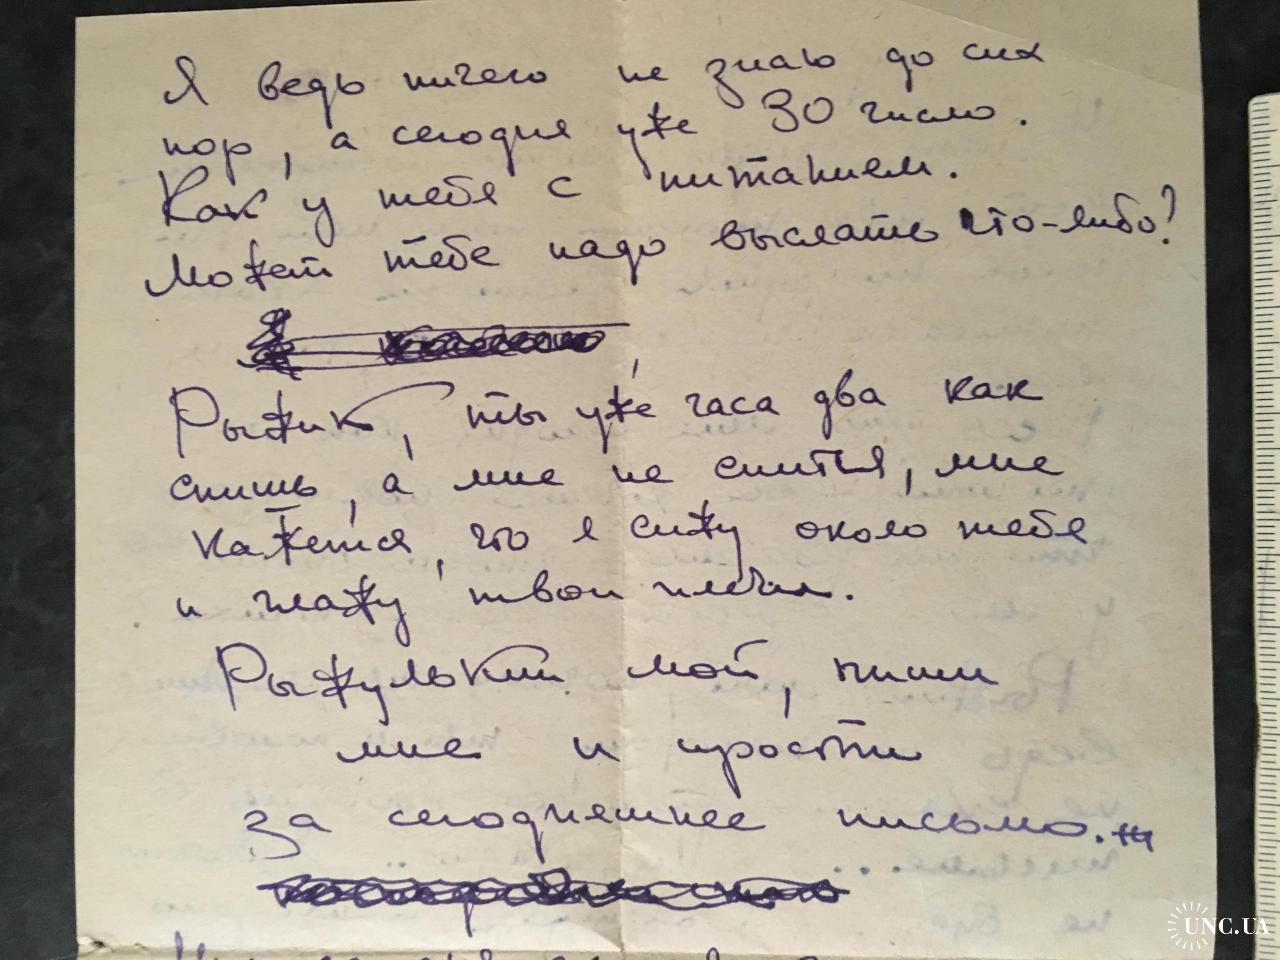 Я ведь ничего не знаю до сих
пор, а сегодня уже 30 число.
Как у тебя с питанием.
Может тебе надо выслать что-либо?
Рыжик, ты уже часа два как
спишь, а мне не спится, мне
кажется, что я сижу около тебя
и глажу твои плечи.
Рыжулькин мой, пиши
мне и прости
за сегодняшнее письмо.
UNC.UA